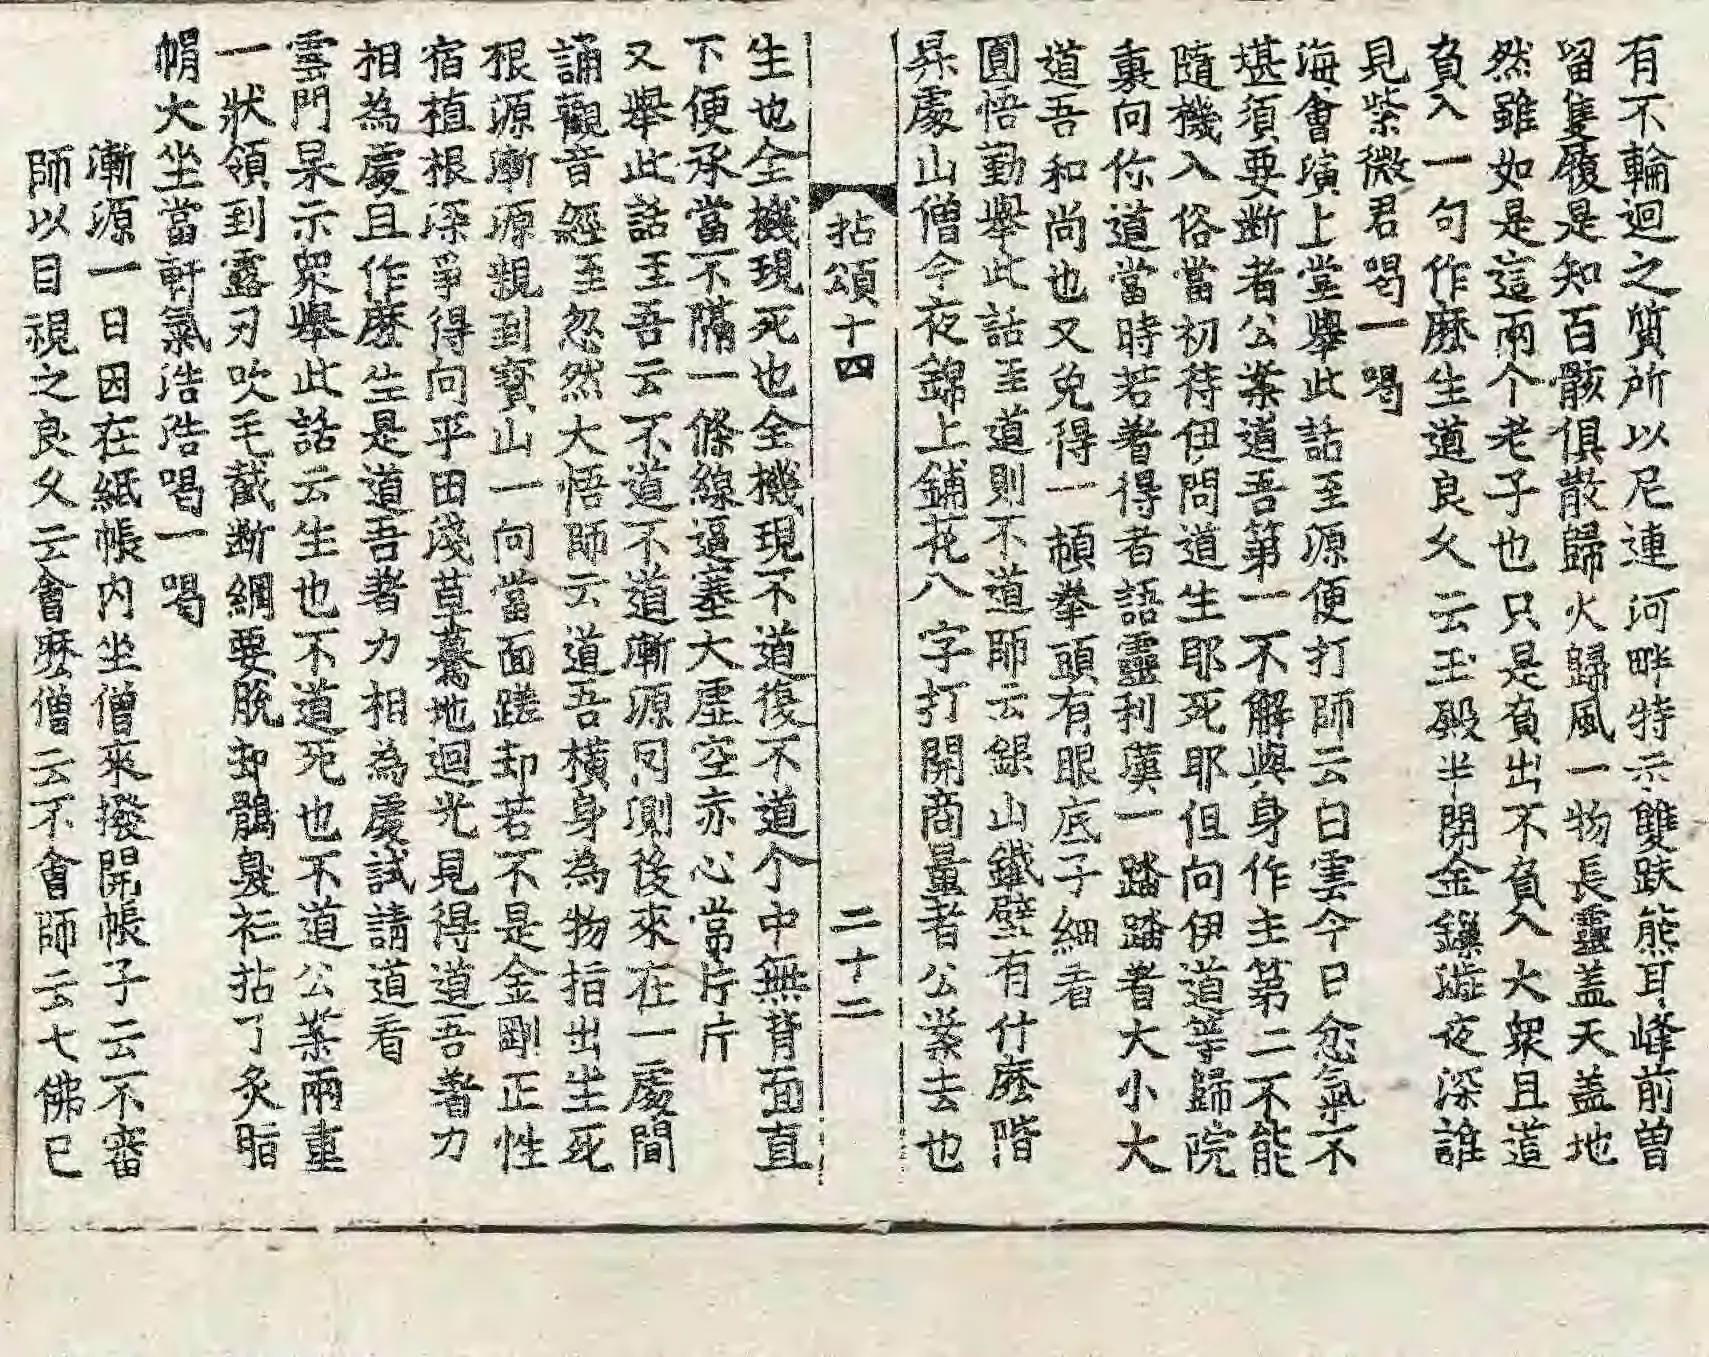 有不輪迴之質所以尼連河畔特示雙趺熊耳峰前曾
留隻履是知百骸俱散歸火歸風一物長靈盖天盖地
然雖如是這兩个老子也只是負出不負入大衆且道
負入一句作麽生道良久云玉殿半開金鏁澁夜深誰
見紫微君喝一喝
海會演上堂舉此話至源便打師云白雲今日忿氣不
堪須要断者公案道吾第一不解與身作主第二不能
隨機入俗當初待伊問道生耶死耶但向伊道等歸院
裏向你道當時若著得者語靈利漢一踏踏著大小大
道吾和尚也又免得一頓拳頭有眼底子細看
圓悟勤舉此話至道則不道師云銀山鐵壁有什麽階
昇處山僧今夜錦上鋪花八字打開商量者公案去也
拈頌十四
二十二
生也全機現死也全機現不道復不道个中無背面直
下便承當不隔一條線逼塞大虛空亦心當片片
又舉此話至吾云不道不道漸源罔測後來在一處間
誦觀音經至忽然大悟師云道吾橫身為物指出生死
根源漸源親到寳山一向當面蹉却若不是金剛正性
宿植根深爭得向乎田淺草驀地迴光見得道吾著力
相為處且作麽生是道吾著力相為處試請道看
雲門杲示衆舉此話云生也不道死也不道公案兩重
一狀領到露刃吹毛截断綱要脫却鶻臭衫拈了炙脂
帽大坐當軒氣浩浩喝一喝
漸源一日因在紙帳内坐僧來撥開帳子云不審
師以目視之良久云會麽僧云不會師云七佛已